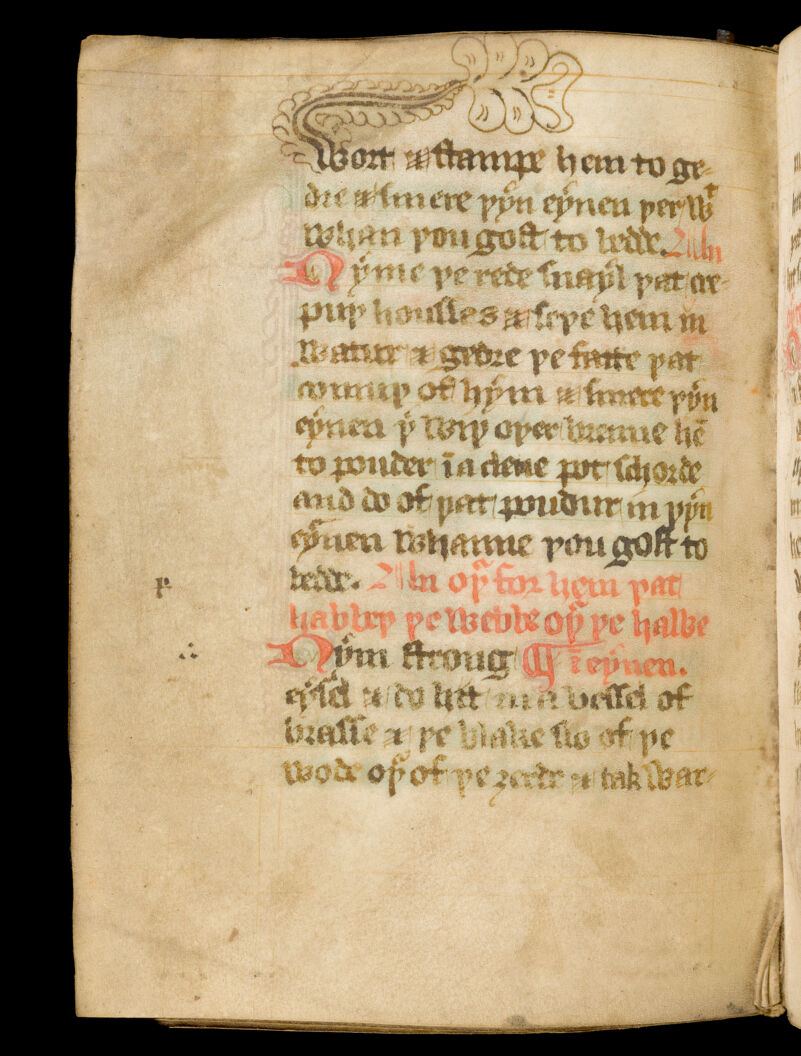 wort & stampe hem to ge-
dre & smere þyn eynen þer wt
whan þou gost to bedde. An
Nyme þe rede snayl þat cre-
puþ housles & seþe hem in
watur & gedre þe fatte þat
comuþ of hym & smere þyn
eynen þer wiþ oþer brenne hē
to pouder ī a clene pot schorde
and do of þat poudur in þyn
eynen whanne þou gost to
bedde. An oþr for hem þat
habbeþ þe webbe oþr þe halwe
Nym strong ¶ ī eynen.
eysel & do hit in a vessel of
brasse & þe blake slo of þe
wode oþr of þe zerde & tak war-